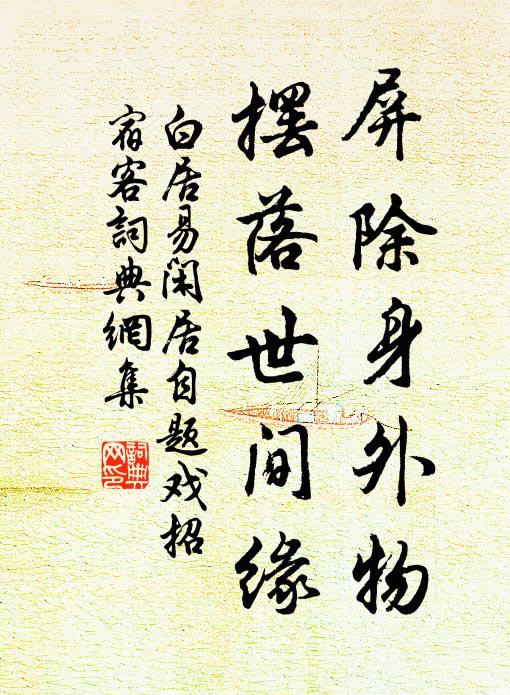 屏除身外物
摆落世间缘
白居易闲居自题戏招
宿客词典网集
词典
网印